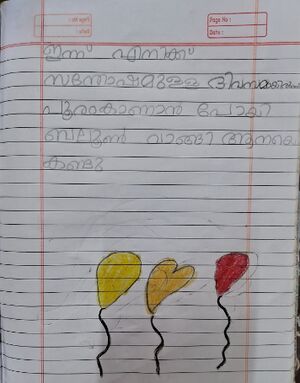 Page No :
Date :
ഇന്ന് എനിക്ക്
സന്തോഷമുള്ള ദിവസമാണ്
പൂരംകാണാൻ പോയി
ബലൂൺ വാങ്ങി ആനയെ
കണ്ടു